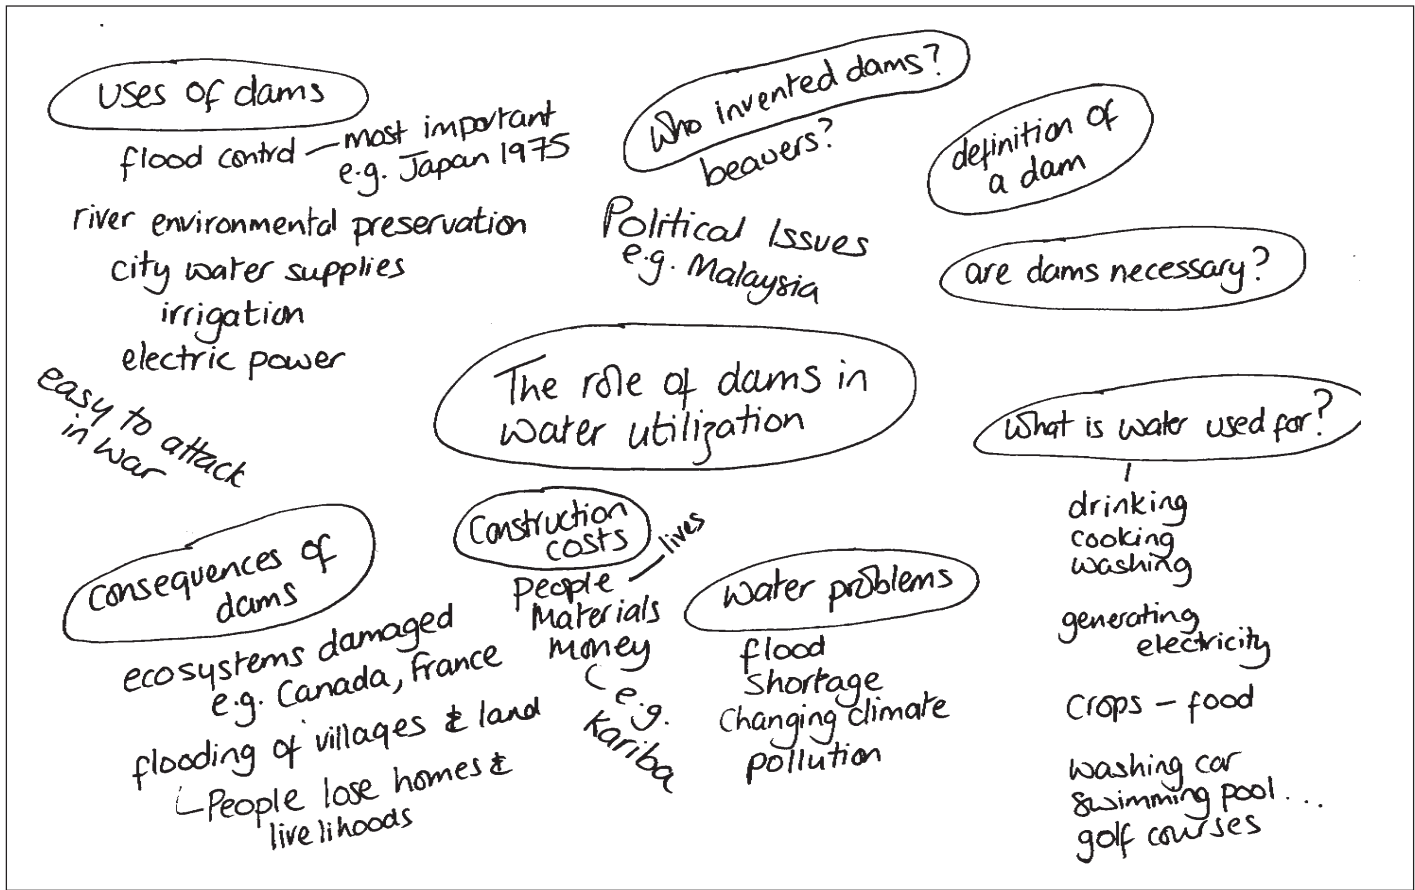 uses of dams
flood control — most important
e.g. Japan 1975
river environmental preservation
city water supplies
irrigation
electric power
easy to attack
in war
Who invented dams?
beavers?
Political Issues
e.g. Malaysia
definition of
a dam
are dams necessary?
The role of dams in
water utilization
What is water used for?
drinking
cooking
washing
generating
electricity
crops – food
washing car
swimming pool ...
golf courses
Consequences of
dams
ecosystems damaged
e.g. Canada, France
flooding of villages & land
People lose homes &
livelihoods
Construction
costs
People — lives
Materials
Money
e.g.
Kariba
Water problems
flood
Shortage
Changing climate
pollution